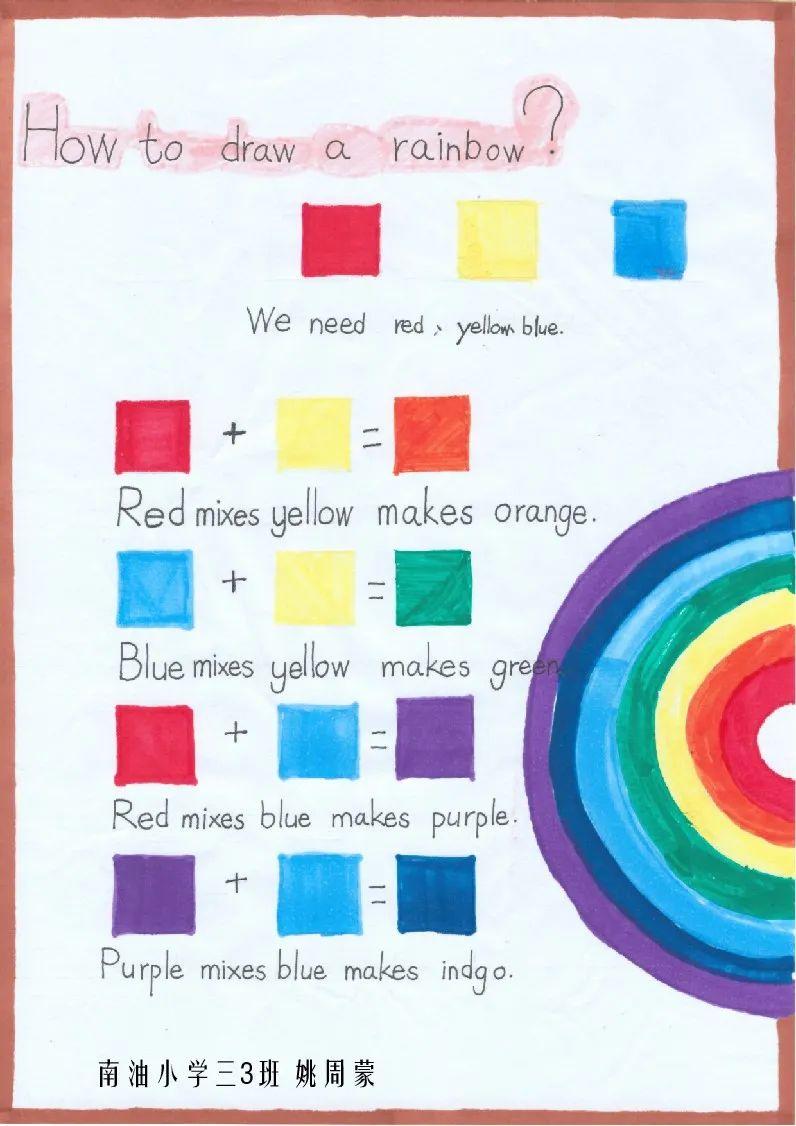 How to draw a rainbow?
We need red、yellow、blue.
+ =
Red mixes yellow makes orange.
+ =
Blue mixes yellow makes green.
+ =
Red mixes blue makes purple.
+ =
Purple mixes blue makes indgo.
南油小学三3班 姚周蒙